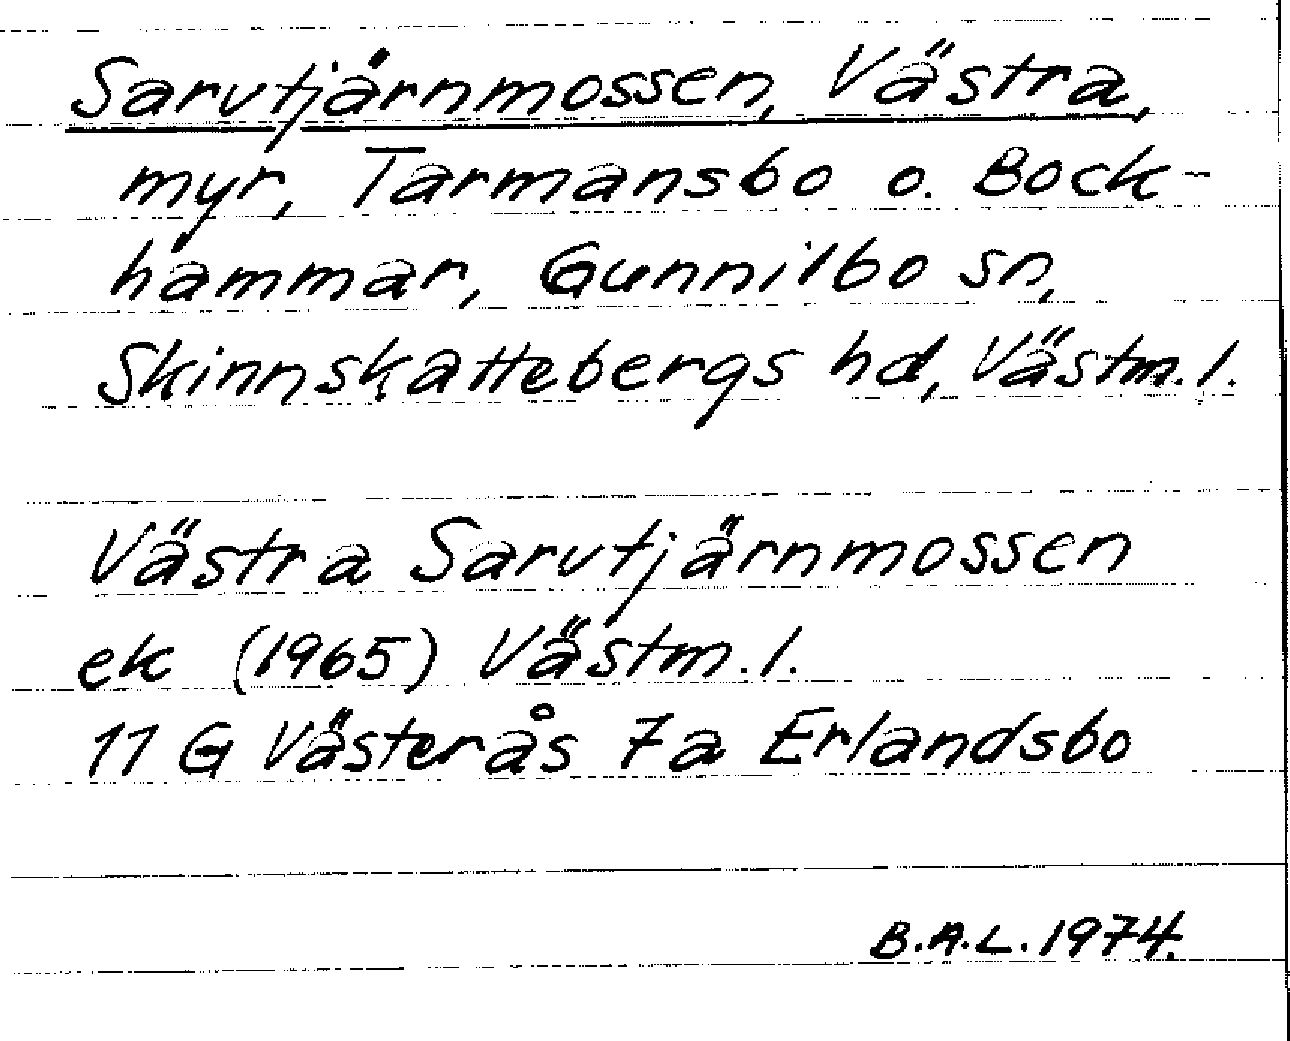 Sarvtjärnmossen, Västra,
myr, Tarmansbo o. Bock-
hammar, Gunnilbo sn,
Skinnskattebergs hd, Västm.l.
Västra Sarvtjärnmossen
ek (1965) Västm.l.
11 G Västerås 7a Erlandsbo
B.A.L. 1974.